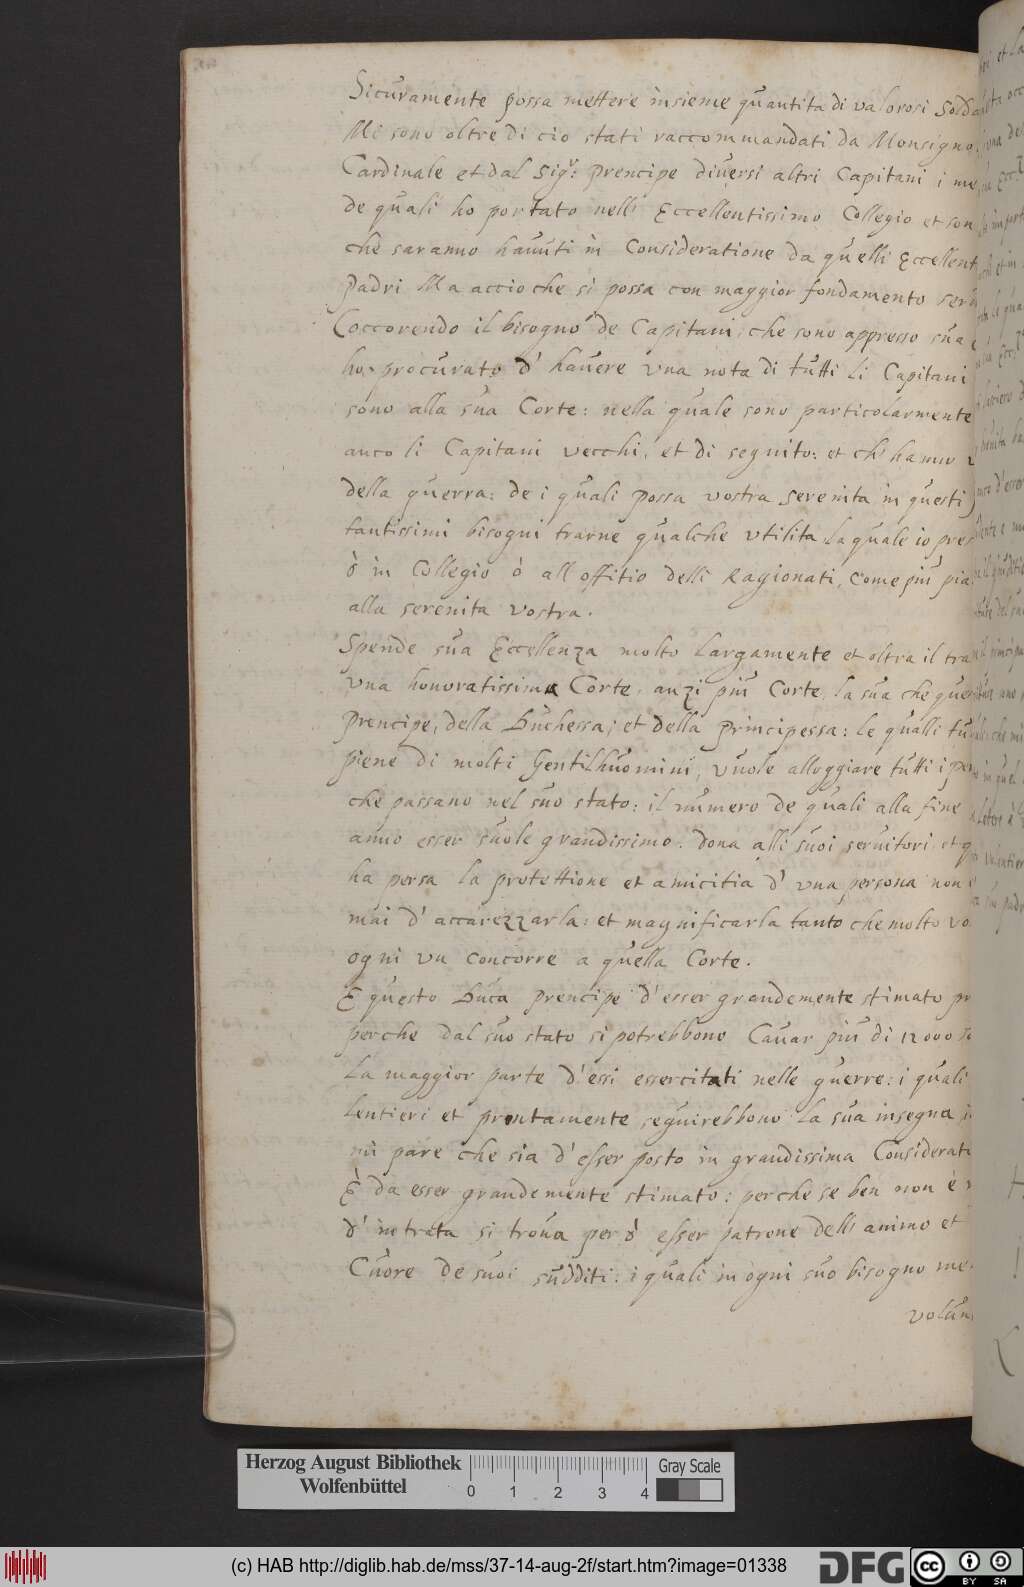 Sicuramente possa mettere insieme quantita di valorosi Solda
Mi sono oltre di cio stati raccommandati da Monsigno
Cardinale et dal Sigr: prencipe diversi altri Capitani i
de quali ho portato nelli Eccellentissimo Collegio et son
che saranno havuti in Consideratione da quelli Eccellent
Padri Ma accioche si possa con maggior fondamento
Coccorendo il bisogno de Capitani, che sono appresso sua
ho procurato d' havere vna nota di tutti li Capitani
sono alla sua Corte: nella quale sono particolarmente
anco li Capitani vecchi, et di seguito: et ch' hanno
della guerra: de i quali possa vostra serenita in questi
tantissimi bisogni trarne qualche vtilita la quale io pres
ò in Collegio ò all offitio delli Ragionati, come piu pia
alla serenita vostra.
Spende sua Eccellenza molto largamente et oltra il tra
vna honoratissima Corte, anzi piu Corte, la sua che quel
Prencipe, della Duchessa; et della principessa: le qualli tu
piene di molti Gentilhuomini, vuole alloggiare tutti i per
che passano nel suo stato: il numero de quali alla fine
anno esser suole grandissimo. dona alli suoi servitori et q
ha persa la protettione et amicitia d' vna persona non
mai d' accarezzarla: et magnificarla tanto che molto vo
ogni vn concorre a quella Corte.
E questo Duca prencipe d' esser grandemente stimato pr
perche dal suo stato si potrebbono Cavar piu di 12000
La maggior parte d' essi essercitati nelle guerre: i quali
lentieri et prontamente seguirebbono la sua insegna
mi pare che sia d' esser posto in grandissima Considerati
È da esser grandemente stimato: perche se ben non è
d' intrata si trova però esser patrone delli animo et
Cuore de suoi sudditi: i quali in ogni suo bisogno me
volun
Herzog August Bibliothek
Wolfenbüttel
0 1 2 3 4
Gray Scale
(c) HAB http://diglib.hab.de/mss/37-14-aug-2f/start.htm?image=01338
DFG
cc BY SA